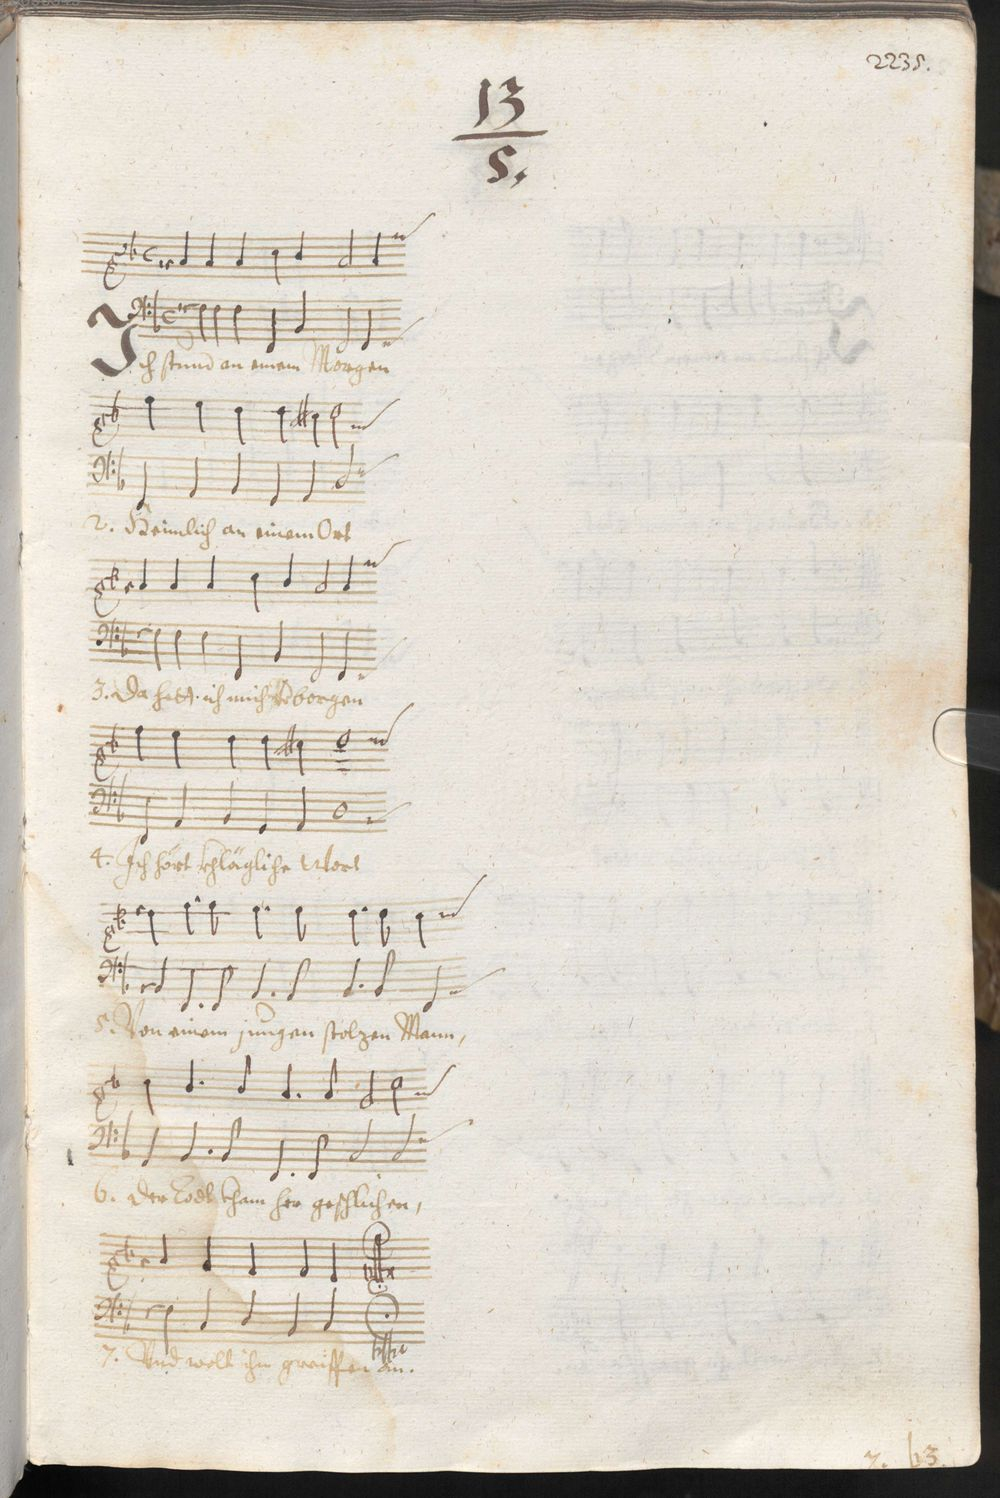 2235.
13
5,
Ich stund an einem Morgen
2. Heimlich an einem Ort
3. Da hett ich mich verborgen
4. Ich hört khlägliche Wort
5. Von einem jungen stolzen Mann,
6. Der Todt kham her geschlichen,
7. Und wolt ihn greiffen an.
7. 13.